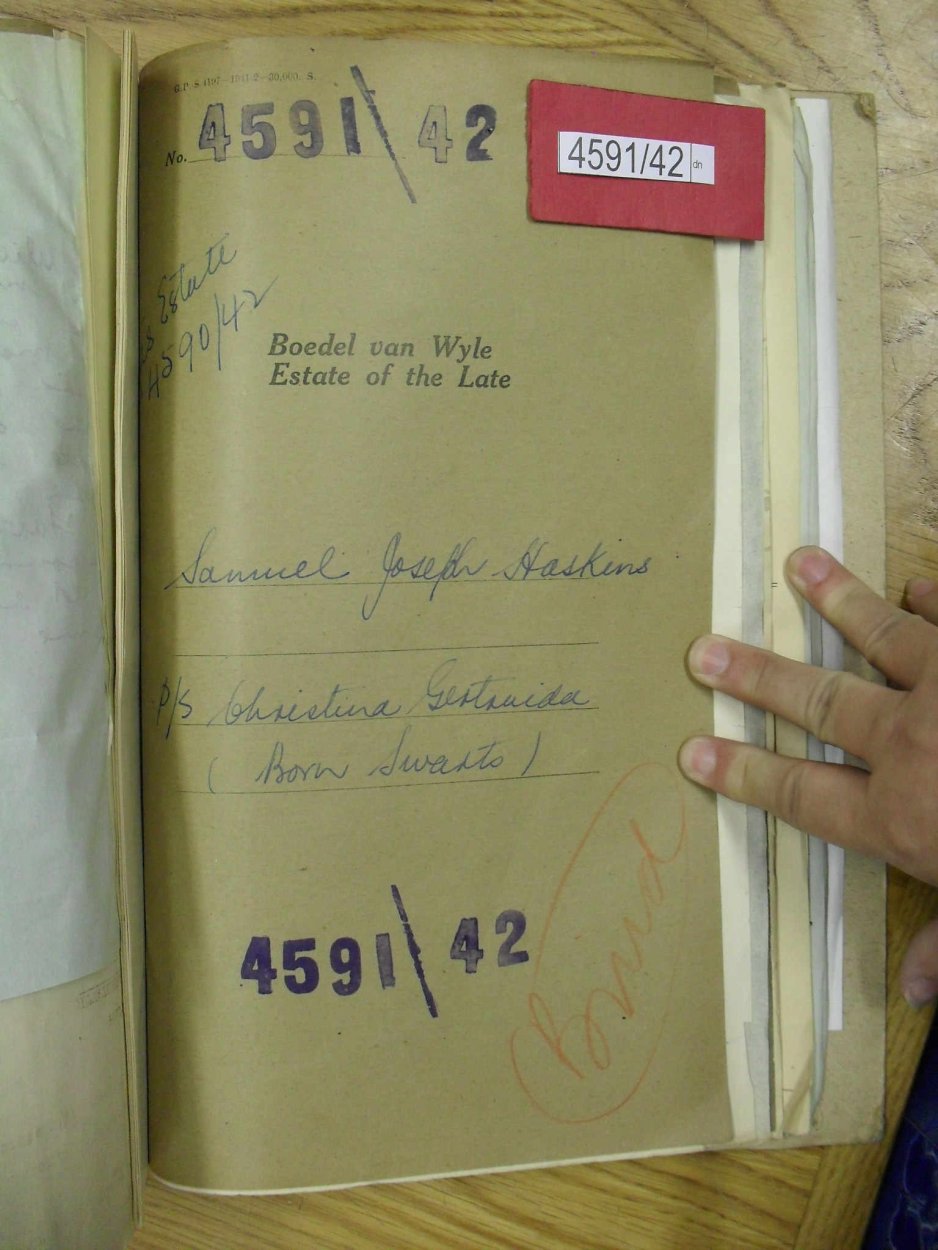 G.P. S.4197—1941-2—30,000. S.
No. 4591\42
4591/42 dn
Estate
4590/42
Boedel van Wyle
Estate of the Late
Samuel Joseph Haskins
P/S Christina Gertruida
(Born Swarts)
4591\42